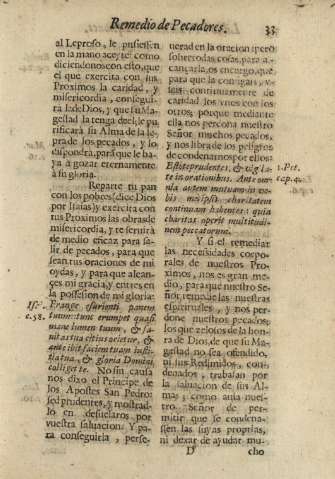 Remedio de Pecadores. 33
al Leproso, le pusiessen
en la mano azeyte: como
diciendonos: con esto, que
el que exercita con sus
Proximos la caridad, y
misericordia, consegui-
rà de Dios, y que su Ma-
gestad la tenga de el; le pu-
rificarà su Alma de la le-
pra de los pecados, y lo
dispondrà, para que le va-
ya à gozar eternamente
à su gloria.
Reparte tu pan
con los pobres (dice Dios
por Isaias) y exercita con
tus Proximos las obras de
misericordia, y te servirà
de medio eficaz para sa-
lir de pecados, para que
sean tus oraciones de mi
oydas, y para que alcan-
çes mi gracia, y entres en
la possession de mi gloria:
Isa.
c. 58.
Frange esurienti panem
tuum: tunc erumpet quasi
mane lumen tuum, & sa-
nitas tua citius orietur, &
ante ibit faciem tuam justi-
tia tua, & gloria Domini
colliget te. No sin causa
nos dixo el Principe de
los Apostes San Pedro:
sed prudentes, y mostrad-
lo en desvelaros por
vuestra salvacion: Y pa-
ra conseguirla, perse-
verad en la oracion; pero
sobre todas cosas, para al-
cançarla, os encargo, que
para que la consigais, vi-
vais continuamente de
caridad los vnos con los
otros; porque mediante
ella nos perdona nuestro
Señor muchos pecados,
y nos libra de los peligros
de condenarnos por ellos:
Estote prudentes, & vigila-
te in orationibus. Ante om-
nia autem mutuam in vo-
bis metipsis charitatem
continuam habentes: quia
charitas operit multitudi-
nem peccatorum.
1. Pet.
cap. 4.
Y si el remediar
las necesidades corpo-
rales de nuestros Pro-
ximos, nos es gran me-
dio, para que nuestro Se-
ñor remedie las nuestras
espirituales, y nos per-
done nuestros pecados;
los que zelosos de la hon-
ra de Dios, de que su Ma-
gestad no sea ofendido,
ni sus Redimidos, con-
denados, trabajan por
la salvacion de sus Al-
mas; como avia nues-
tro Señor de per-
mitir que se condena-
ssen las suyas proprias,
ni dexar de ayudar mu-
D cho